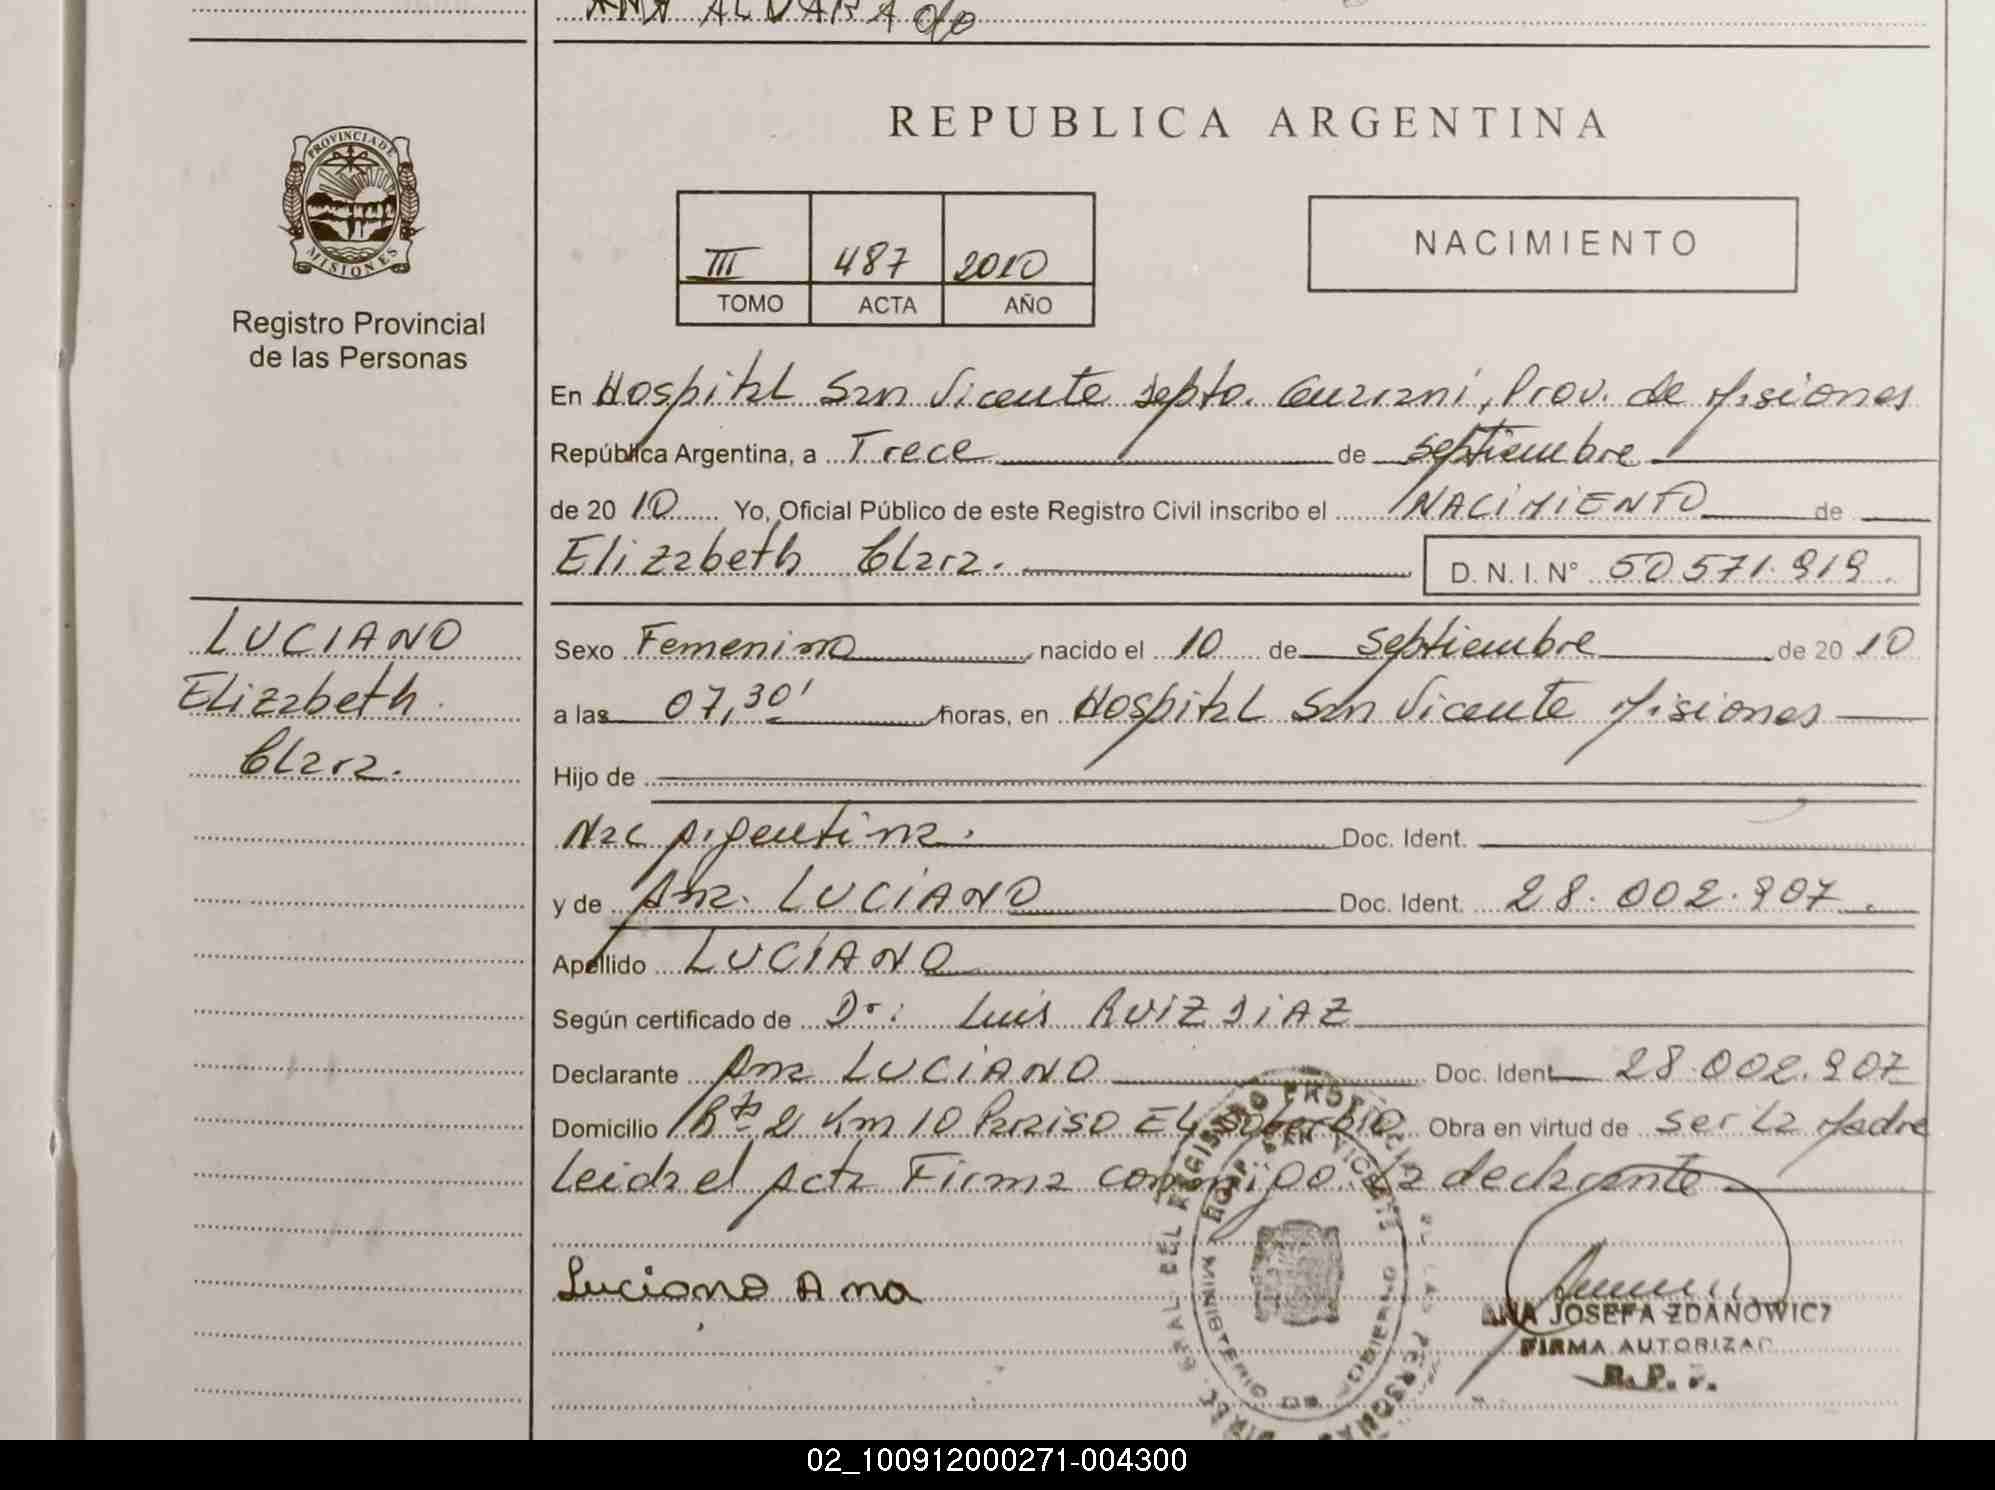 ANA ALVARAdo
REPUBLICA ARGENTINA
PROVINCIA DE
MISIONES
Registro Provincial
de las Personas
III 487 2010
TOMO ACTA AÑO
NACIMIENTO
En Hospital San Vicente Depto. Guarani, Prov. de Misiones
República Argentina, a Trece de septiembre
de 20 10 Yo, Oficial Público de este Registro Civil inscribo el NACIMIENTO de
Elizabeth Clara. D. N. I. N° 50 571.919.
LUCIANO
Elizabeth
Clara.
Sexo Femenino nacido el 10 de Septiembre de 20 10
a las 07,30' horas, en Hospital San Vicente Misiones
Hijo de
Nac Argentina. Doc. Ident.
y de Ana. LUCIANO Doc. Ident. 28.002.907.
Apellido LUCIANO
Según certificado de Dr: Luis RUIZ DIAZ
Declarante Ana LUCIANO Doc. Ident 28.002.907
Domicilio Rta 2 Km 10 Paraiso El Soberbio Obra en virtud de ser la Madre
Leida el Acta Firma conmigo la declarante
Luciano Ana
ANA JOSEFA ZDANOWICZ
FIRMA AUTORIZAD
R. P. P.
DIREC. GRAL. DEL REGISTRO PROVINCIAL DE LAS PERSONAS
HOSP. SAN VICENTE
MINISTERIO DE GOBIERNO
02_100912000271-004300